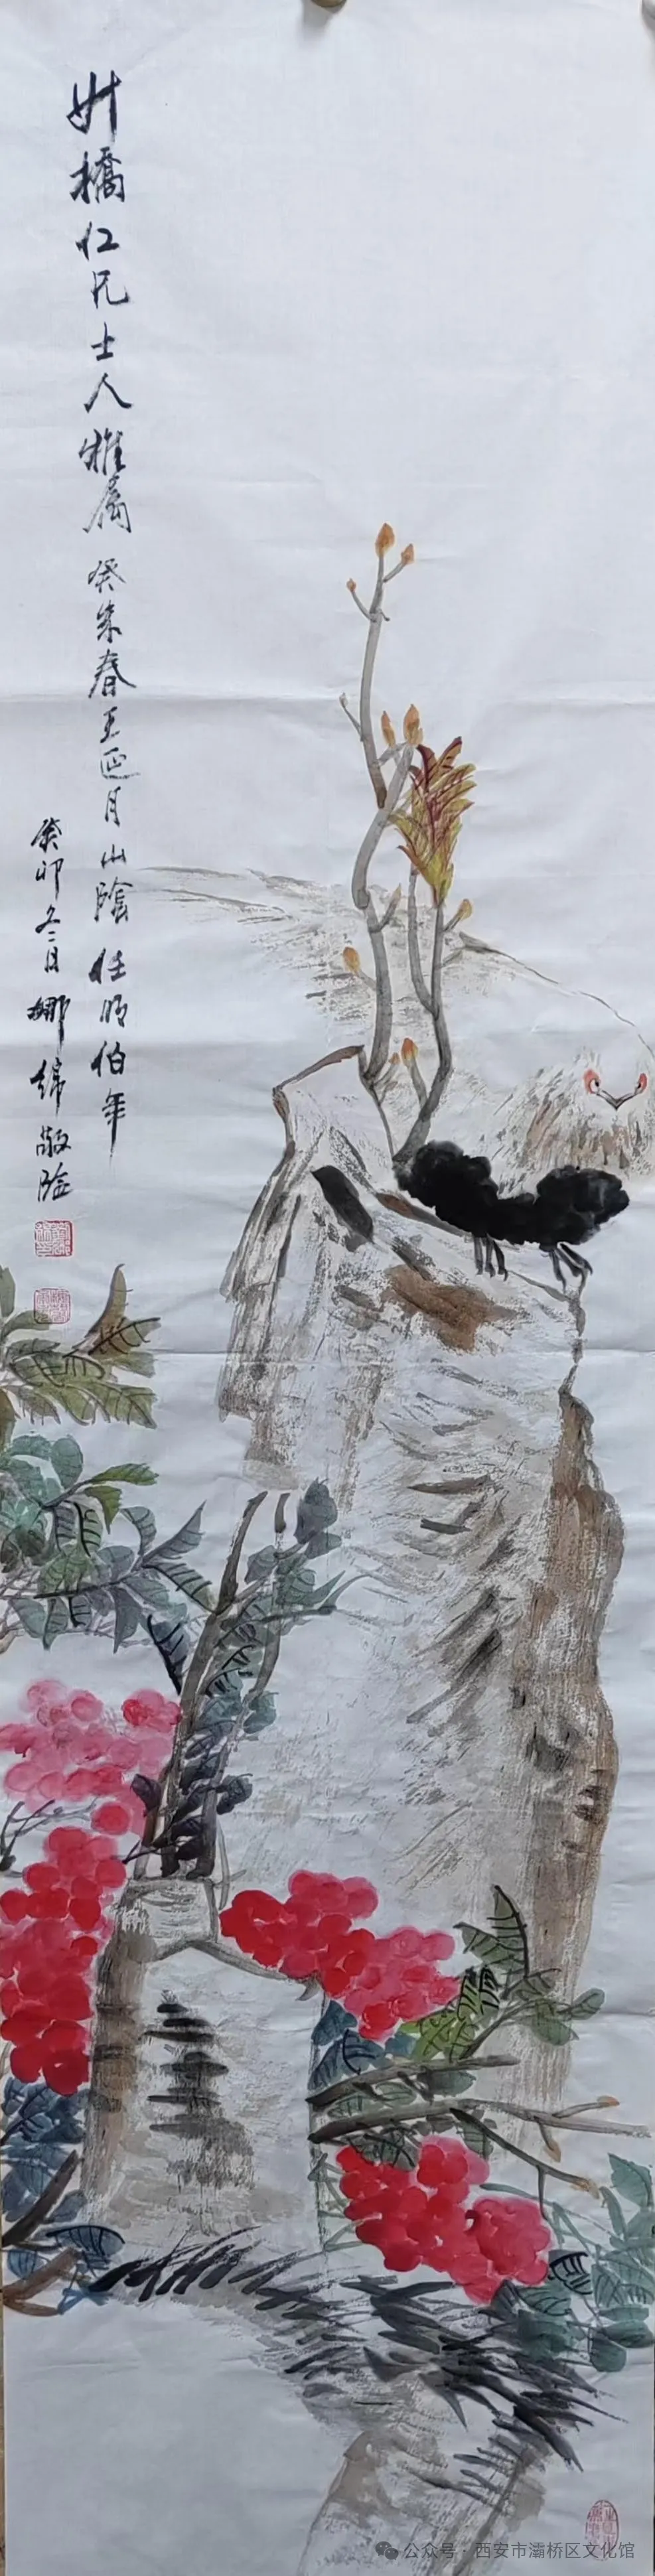 升橋仁兄士人雅属 癸未春王正月山陰任頤伯年
癸卯冬日娜
公众号 · 西安市灞桥区文化馆